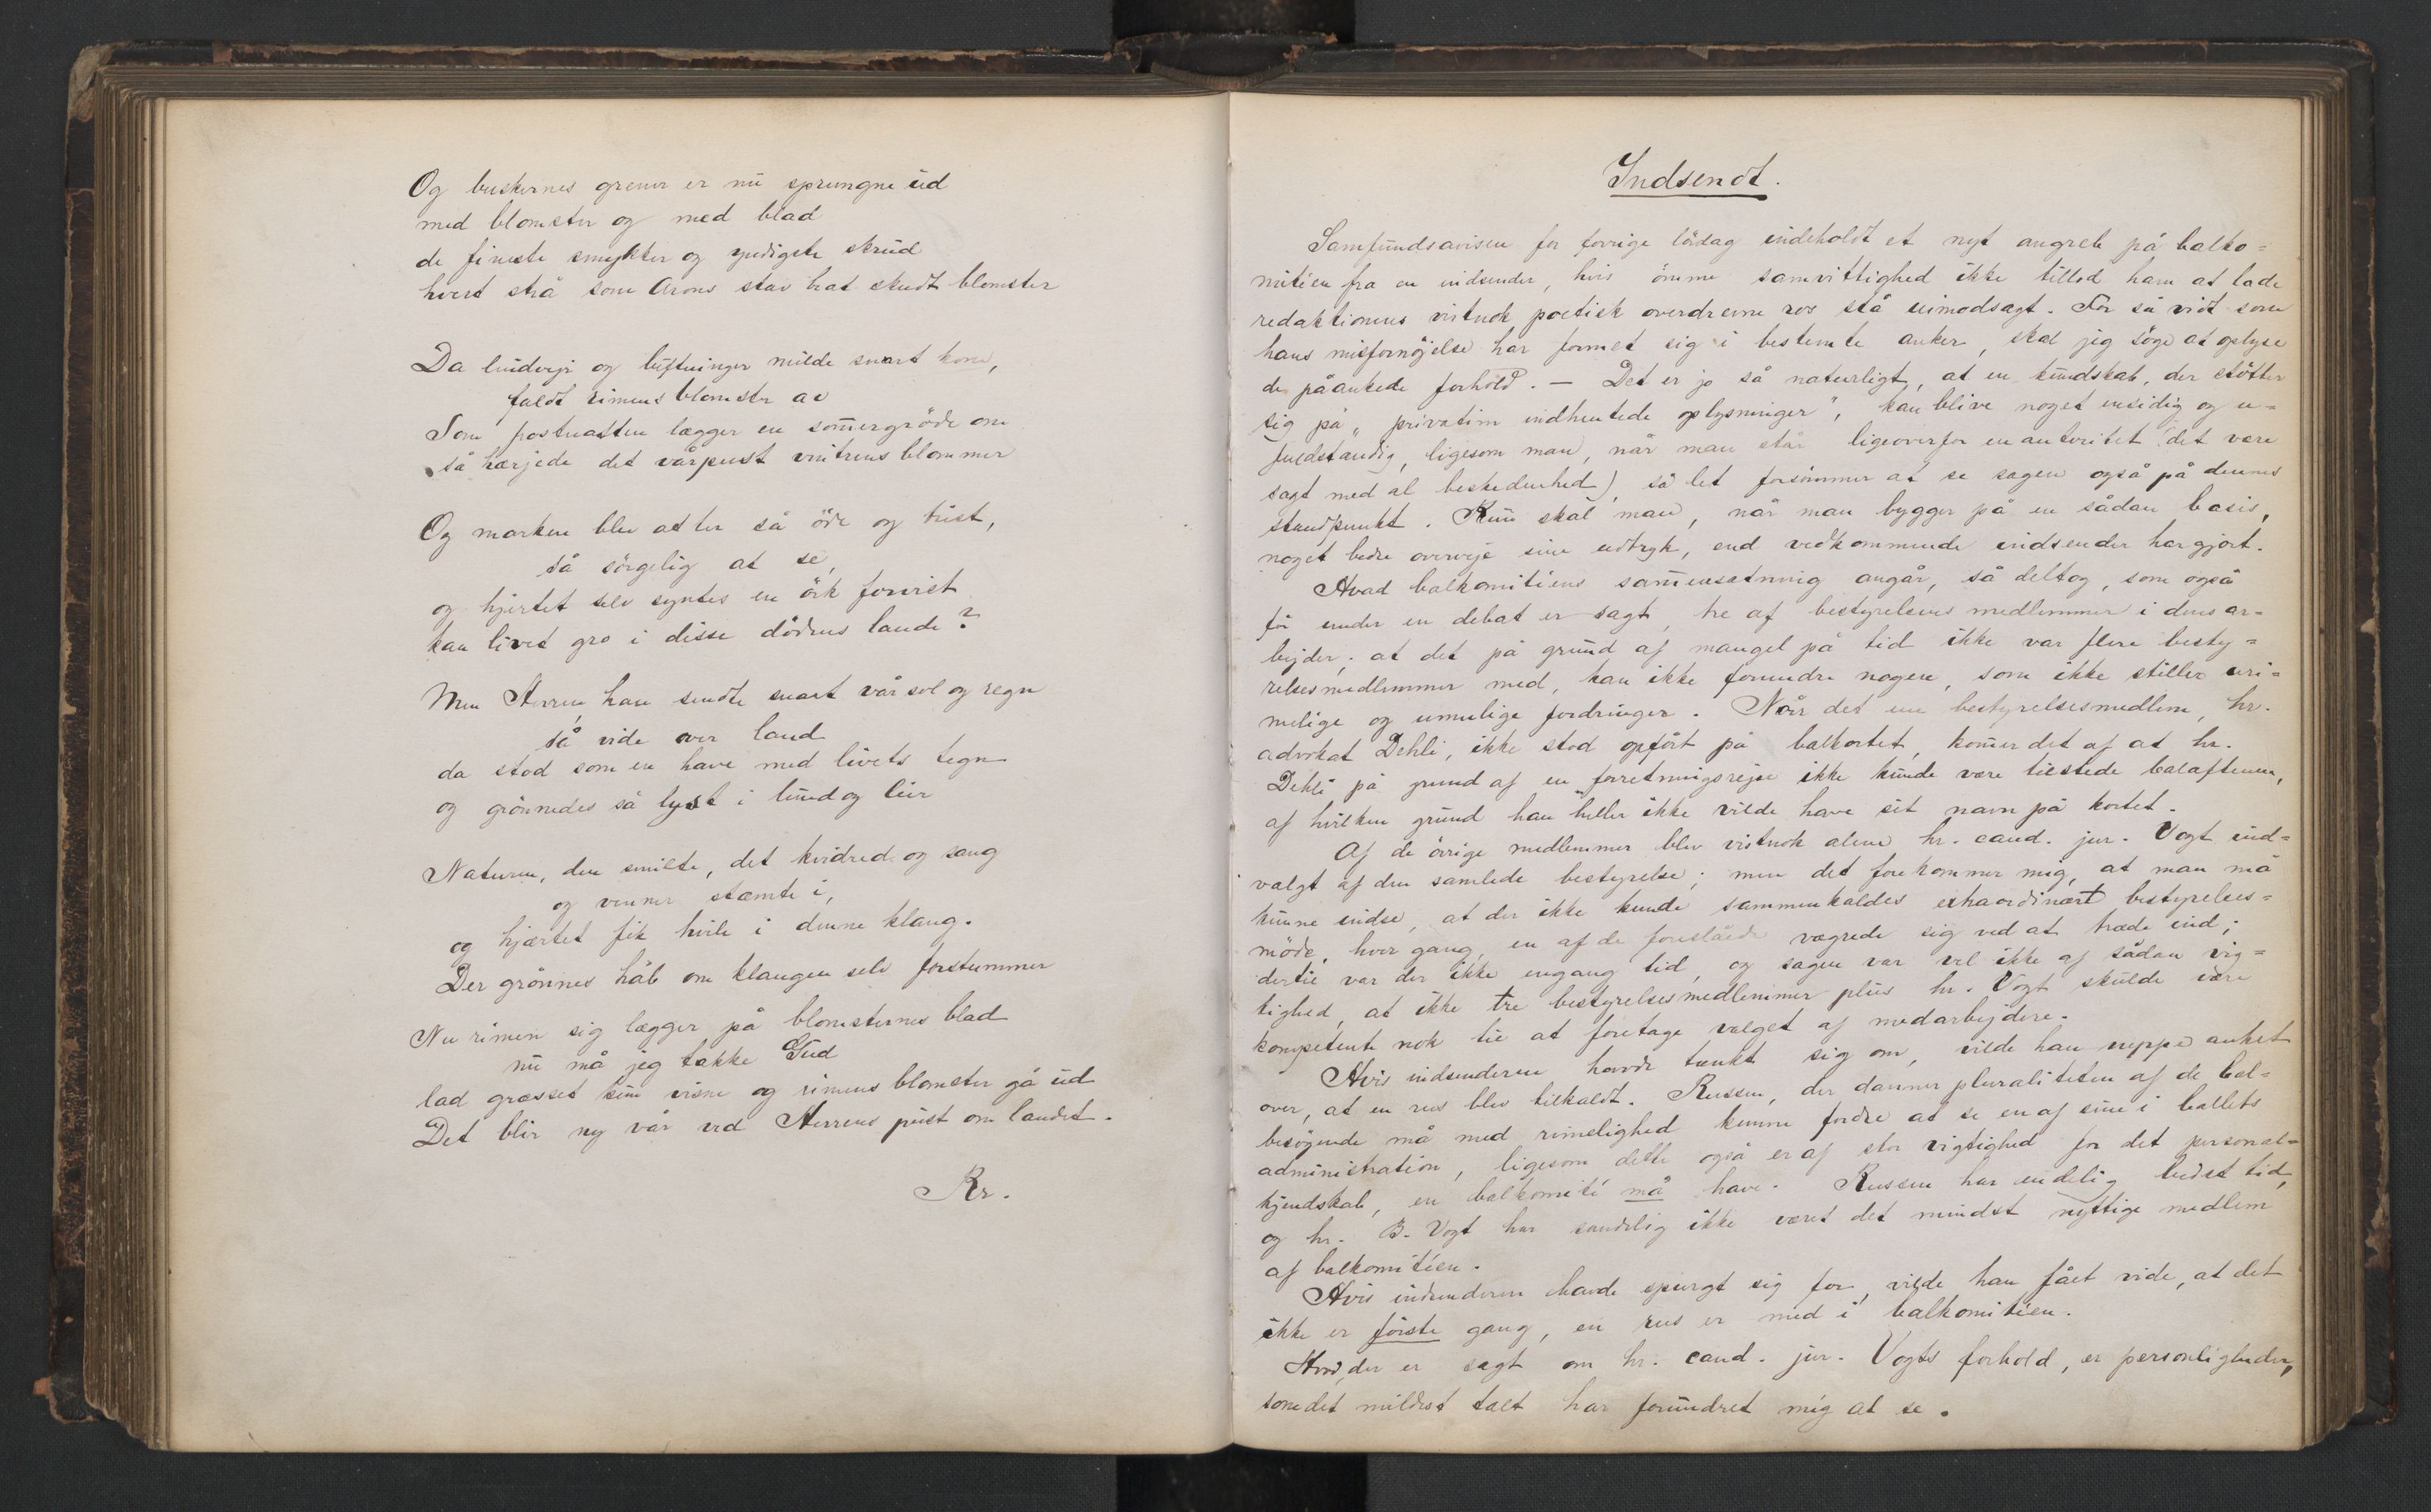 Og buskernes grener er nu sprungne ud
med blomster og med blad
de fineste smykker og yndigste skrud
hvert strå som Arons stav hat skudt blomster
Da lindveir og luftninger milde snart kom,
faldt rimens blomster av
Som postnatten lægger en sommergrøde om
så hærjede det vårpust vintrens blommer
Og marken blev atter så öde og trist,
så sörgelig at se,
og hjertet selv syntes en örk forvist
kan livet gro i disse dödens lande?
Men Herren han sendte snart vår sol og regn
så vide over land
da stod som en have med livets tegn
og grönnedes så lyst i lund og lier
Naturen, den smilte, det kvidred og sang
og venner stæmte i,
og hjærtet fik hvile i denne klang.
Der grönnes håb om klangen selv forstummer
Nu rimen sig lægger på blomsternes blad
nu må jeg takke Gud
lad græsset kun visne og rimens blomster gå ud
Det blir ny vår ved Herrens pust om landet.
Kr.
Indsendt.
Samfundsavisen for forrige lördag indeholdt et nyt angreb på balko=
mitéen fra en indsender, hvis ömme samvittighed ikke tillod ham at lade
redaktionens vistnok poetisk overdrevne ros stå uimodsagt. For så vidt som
hans misfornöjelse har formet sig i bestemte anker, skal jeg söge at oplyse
de påankede forhold. — Det er jo så naturligt, at en kundskab, der stötter
sig på "privatim indhentede oplysninger", kan blive noget ensidig og u=
fuldstændig, ligesom man, når man står ligeoverfor en autoritet (det være
sagt med al beskedenhed), så let forsömmer at se sagen også på dennes
standpunkt. Kun skal man, når man bygger på en sådan basis,
noget bedre overveje sine udtryk, end vedkommende indsender har gjort.
Hvad balkomitéens sammensætning angår, så deltog, som også
för under en debat er sagt, tre af bestyrelsens medlemmer i dens ar=
bejder; at det på grund af mangel på tid ikke var flere besty=
relsesmedlemmer med, kan ikke forundre nogen, som ikke stiller uri=
melige og umulige fordringer. Når det ene bestyrelsesmedlem, hr.
advokat Dehli, ikke stod opfört på balkortet, kommer det af at hr.
Dehli på grund af en forretningsrejse ikke kunde være tilstede balaftenen,
af hvilken grund han heller ikke vilde have sit navn på kortet.
Af de övrige medlemmer blev vistnok alene hr. cand. jur. Vogt ind=
valgt af den samlede bestyrelse; men det forekommer mig, at man må
kunne indse, at der ikke kunde sammenkaldes extraordinært bestyrelses=
möde, hver gang en af de foreslåede vægrede sig ved at træde ind;
dertil var der ikke engang tid, og sagen var vel ikke af sådan vig=
tighed, at ikke tre bestyrelsesmedlemmer plus hr. Vogt skulde være
kompetente nok til at foretage valget af medarbejdere.
Hvis indsenderen havde tænkt sig om, vilde han neppe anket
over, at en rus blev tilkaldt. Russen, der danner pluraliteten af de bal=
besögende må med rimelighed kunne fordre at se en af sine i ballets
administration, ligesom dette også er af stor vigtighed for det personal=
kjendskab, en balkomité må have. Russen har endelig bedst tid,
og hr. B. Vogt har sandelig ikke været det mindst nyttige medlem
af balkomitéen.
Hvis indsenderen havde spurgt sig for, vilde han fået vide, at det
ikke er förste gang, en rus er med i balkomitéen.
Hvad der er sagt om hr. cand. jur. Vogts forhold, er personligheder,
som det mildest talt har forundret mig at se.